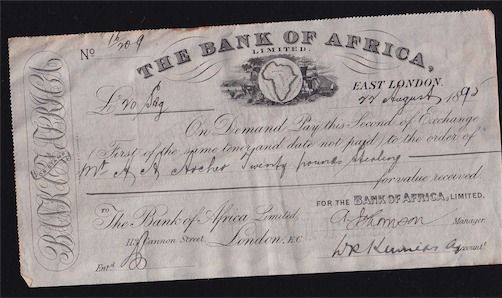 No 12/209
THE BANK OF AFRICA,
LIMITED.
EAST LONDON.
22 August 1895
£20 Stg
On Demand Pay this Second of Exchange
First of the same tenor and date not paid) to the order of
Mr A A Archer Twenty pounds Sterling
for value received
FOR THE BANK OF AFRICA, LIMITED,
TO The Bank of Africa Limited,
A Johnson Manager.
113 Cannon Street, London, E.C.
Entd
Accountt